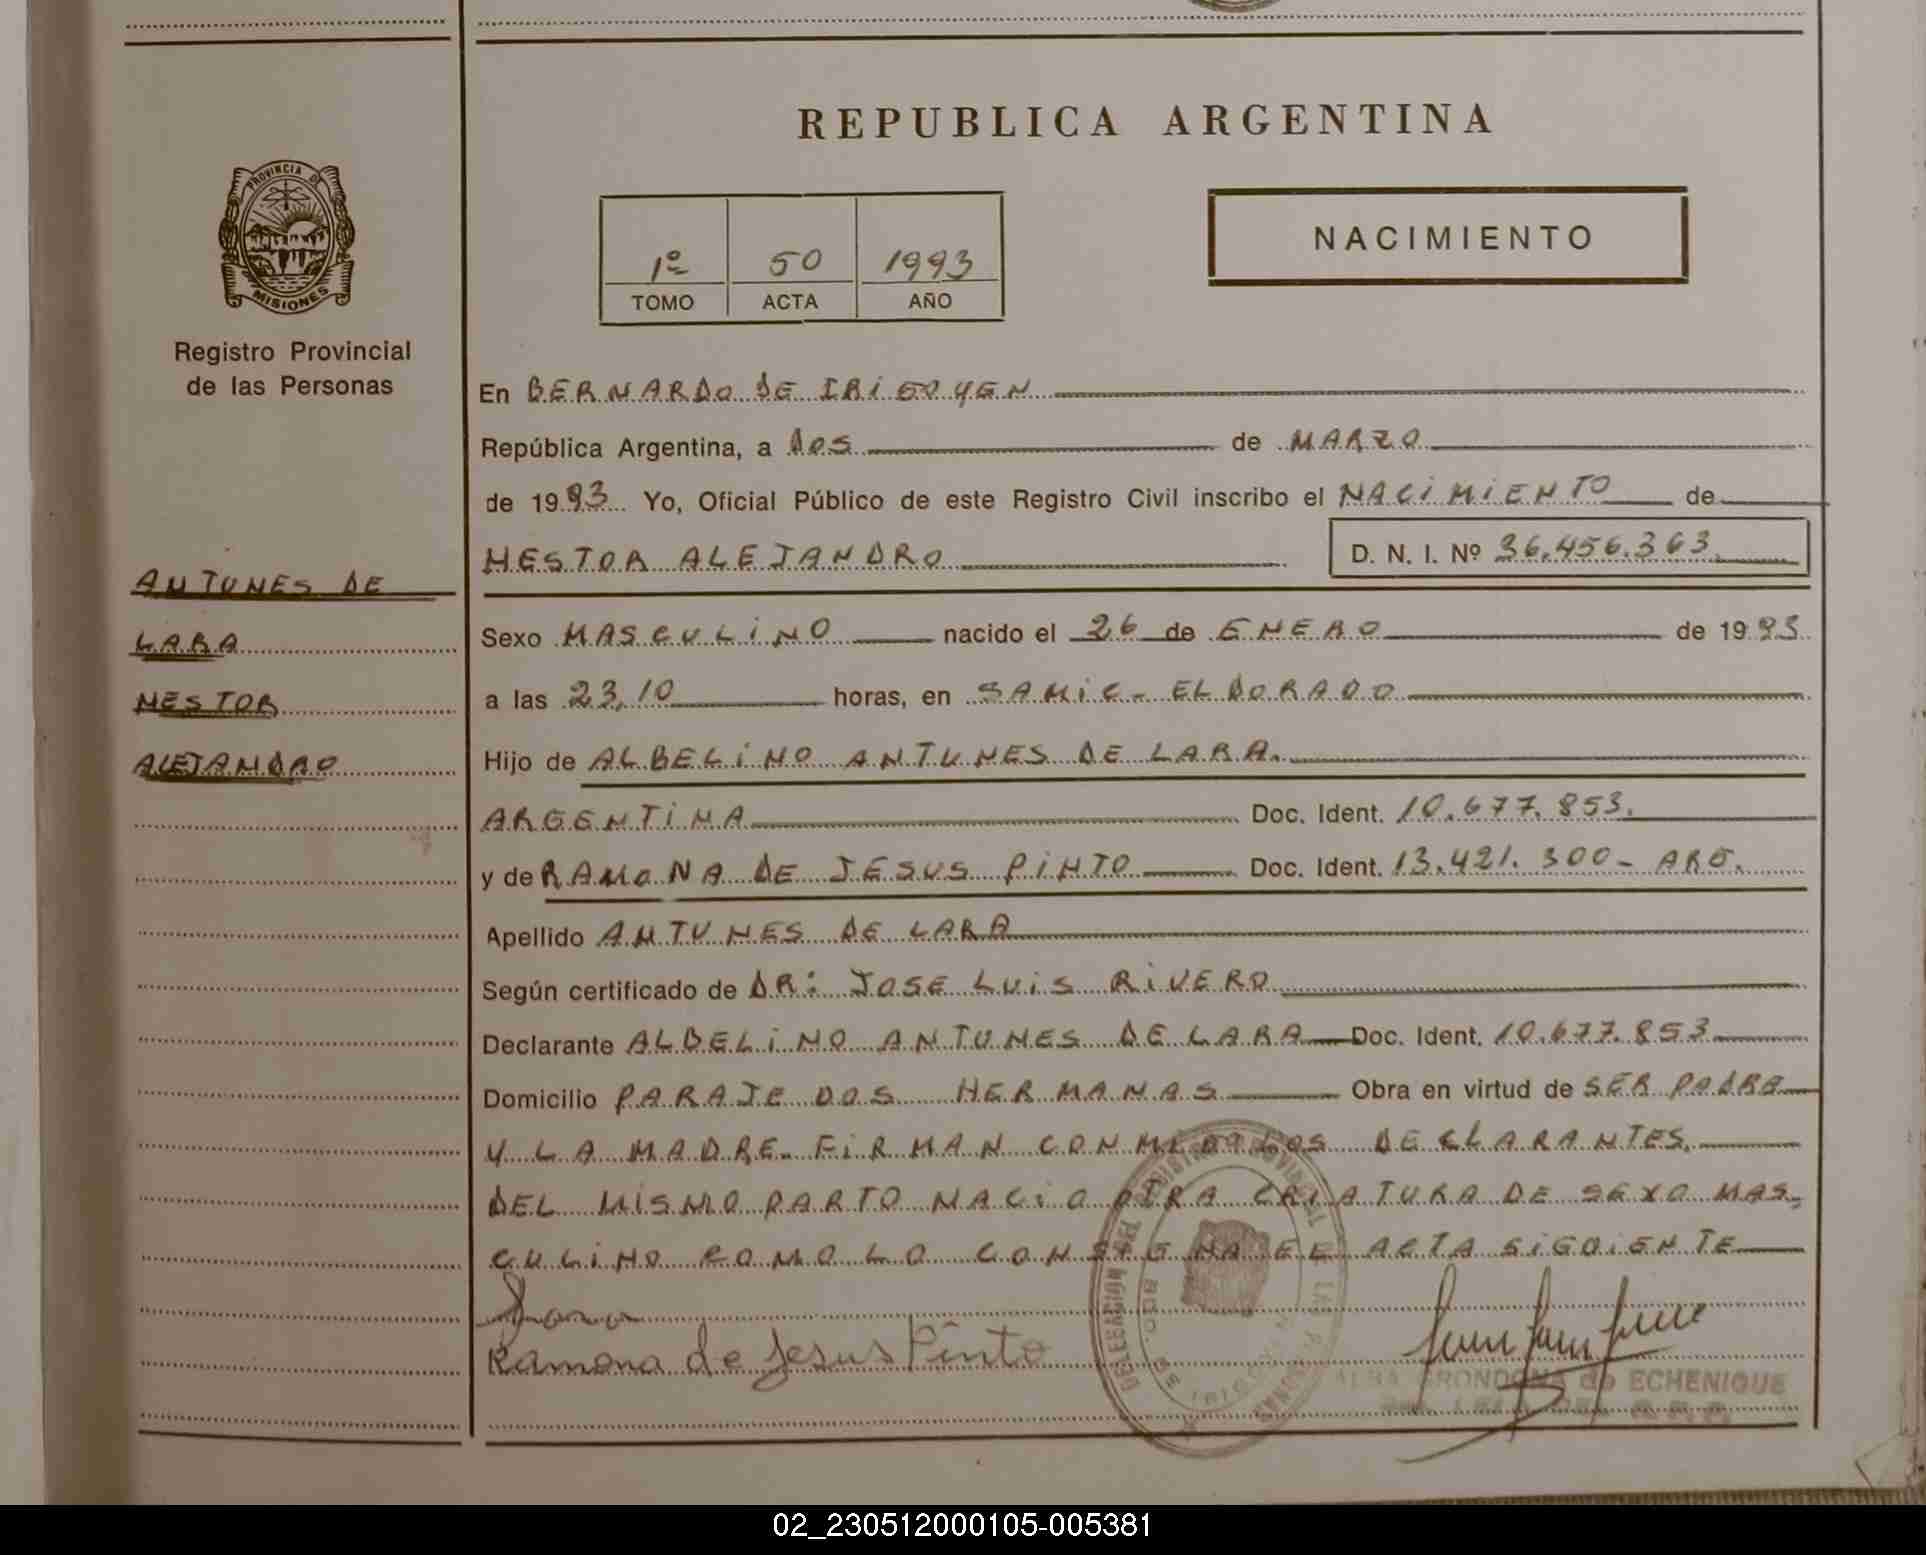 REPUBLICA ARGENTINA
PROVINCIA DE
MISIONES
Registro Provincial
de las Personas
1º 50 1993
TOMO ACTA AÑO
NACIMIENTO
En BERNARDO DE IRIGOYEN
República Argentina, a DOS de MARZO
de 1993 Yo, Oficial Público de este Registro Civil inscribo el NACIMIENTO de
NESTOR ALEJANDRO D. N. I. Nº 36.456.363.
ANTUNES DE
LARA
NESTOR
ALEJANDRO
Sexo MASCULINO nacido el 26 de ENERO de 1993
a las 23,10 horas, en SAMIC - ELDORADO
Hijo de ALBELINO ANTUNES DE LARA.
ARGENTINA Doc. Ident. 10.677.853.
y de RAMONA DE JESUS PINTO Doc. Ident. 13.421.300 - ARG.
Apellido ANTUNES DE LARA
Según certificado de DR: JOSE LUIS RIVERO
Declarante ALBELINO ANTUNES DE LARA Doc. Ident. 10.677.853
Domicilio PARAJE DOS HERMANAS Obra en virtud de SER PADRE
Y LA MADRE. FIRMAN CONMIGO LOS DECLARANTES.
DEL MISMO PARTO NACIO OTRA CRIATURA DE SEXO MAS-
CULINO COMO LO CONSIGNA EL ACTA SIGUIENTE
Lara
Ramona de Jesus Pinto
DELEGACION DEL REGISTRO PROVINCIAL DE LAS PERSONAS
BDO. DE IRIGOYEN
ALBA GRONDONA de ECHENIQUE
02_230512000105-005381